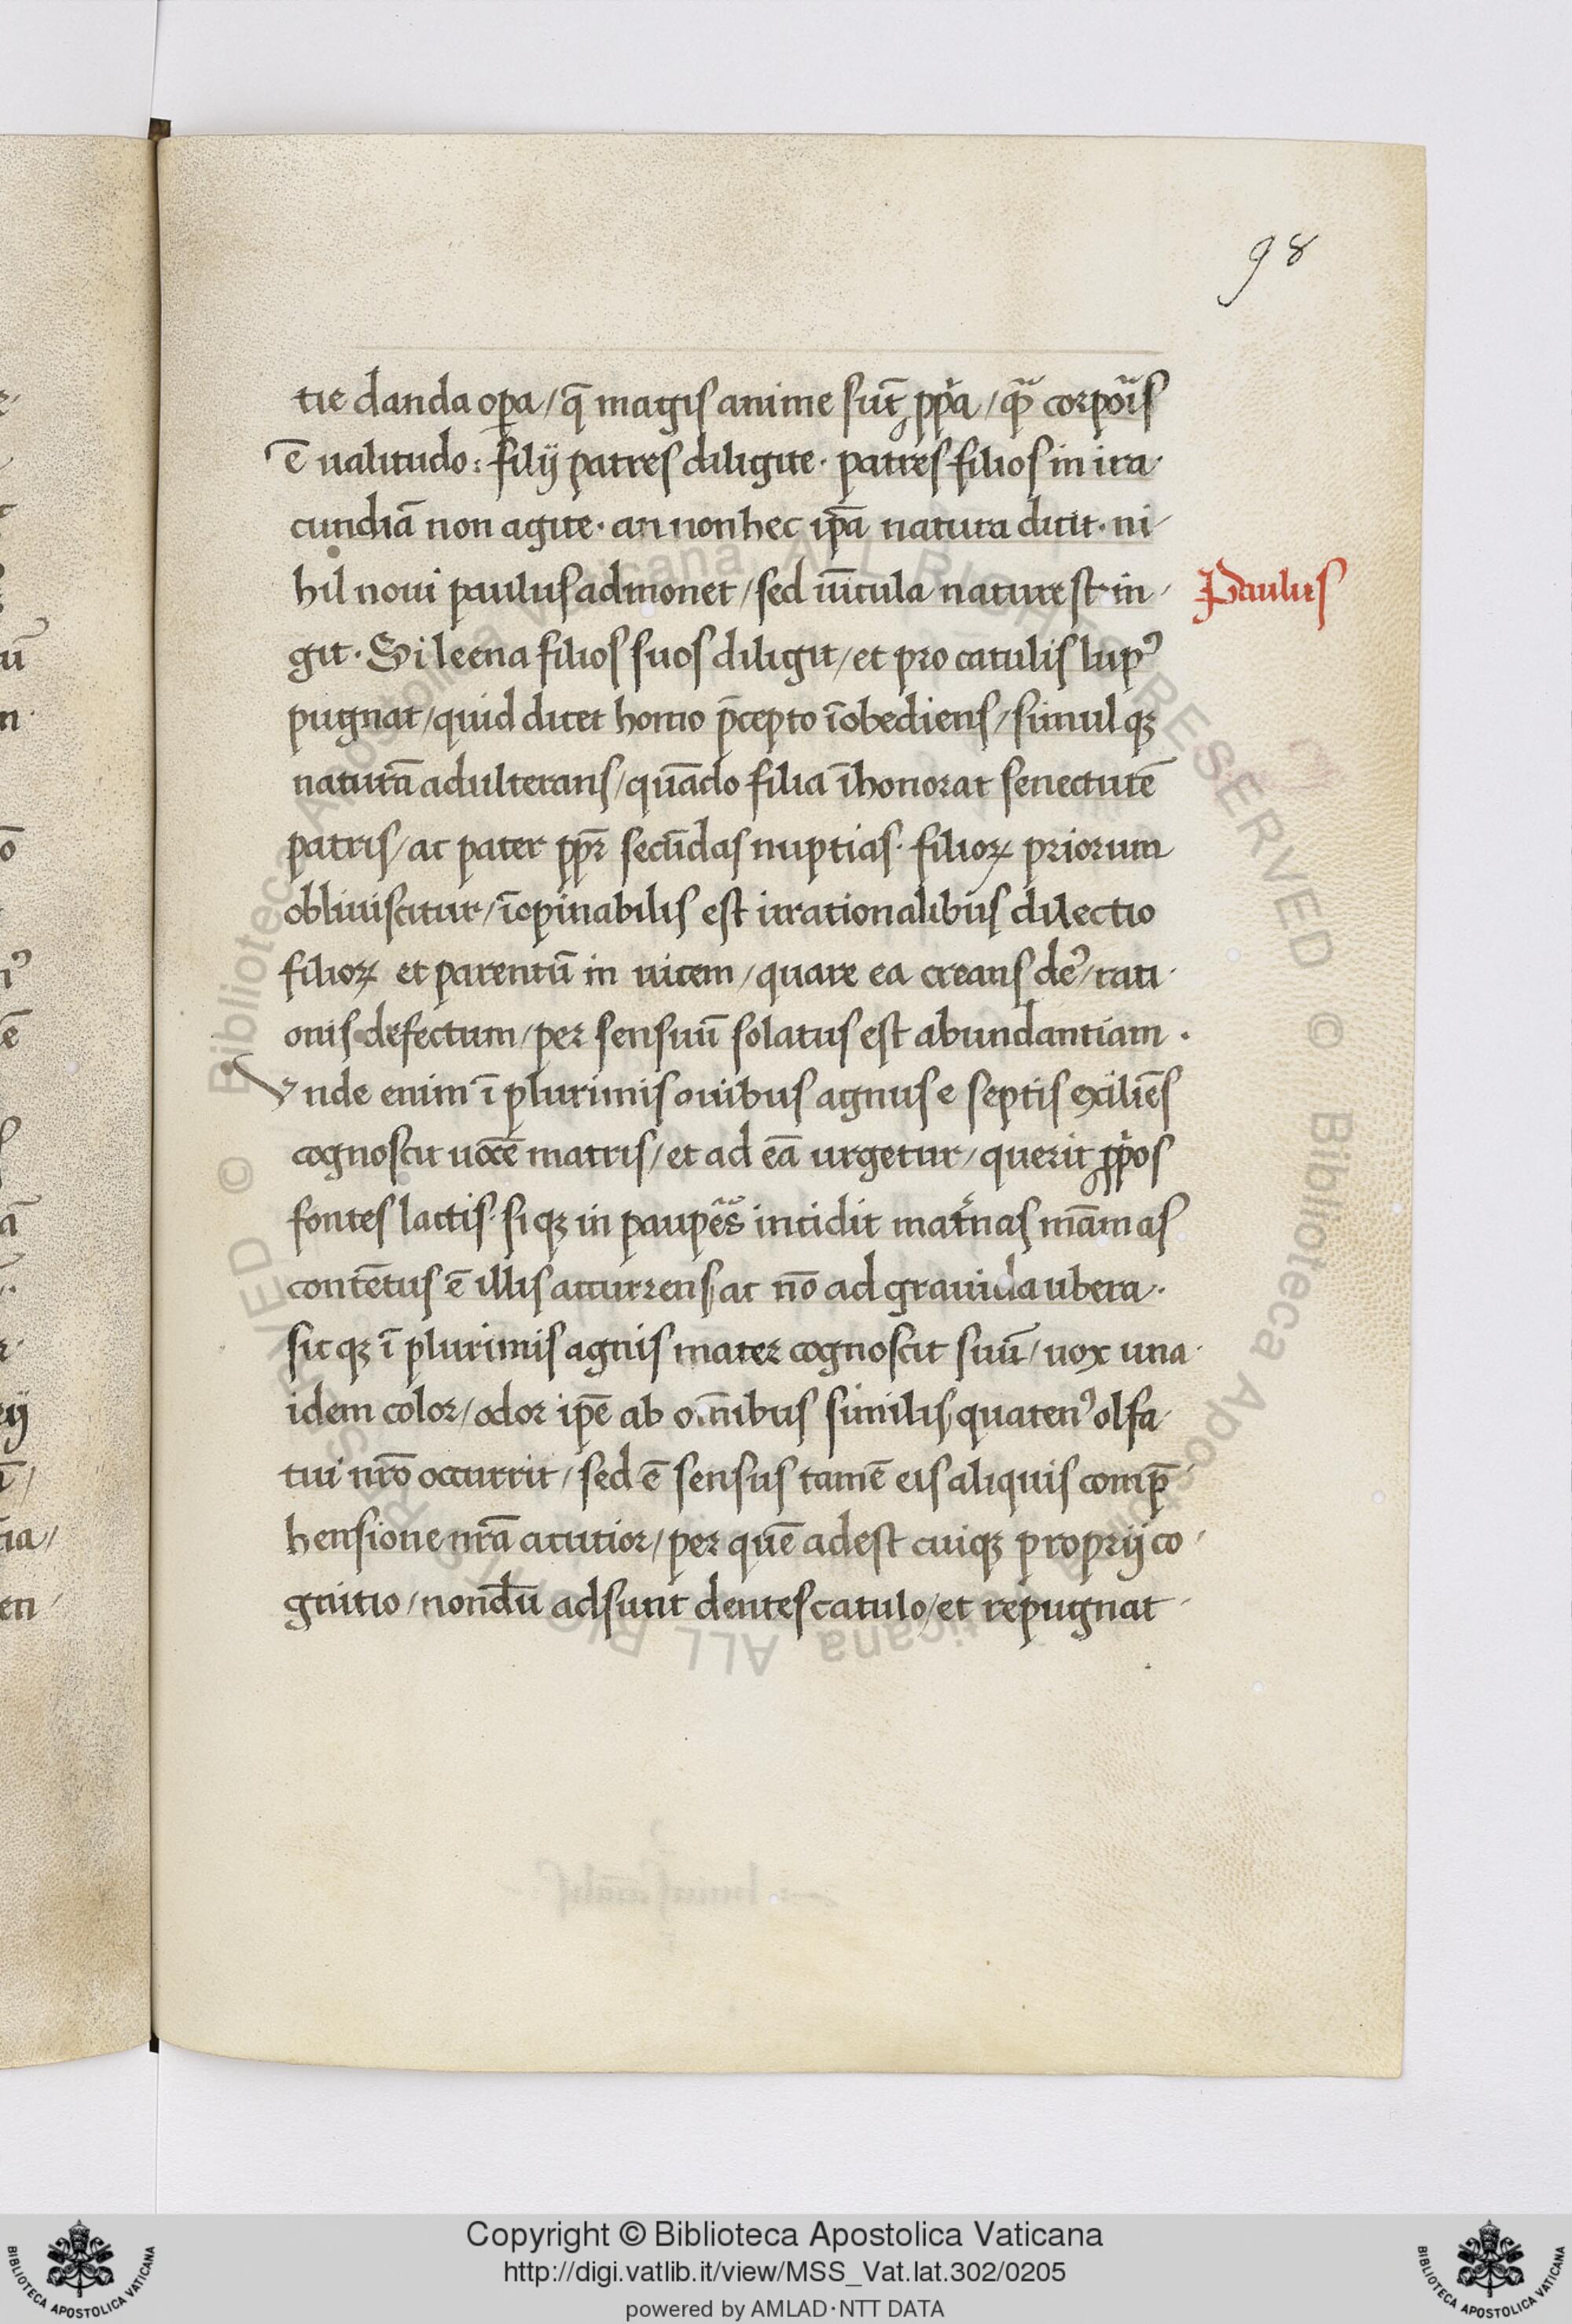 98
tie danda op̲a / q̄ magis anime sūt ꝓp̍a / qᷓꝫ corpoᷓis
ē ualitudo: filij patres diligite · patres filios in ira-
cundiā non agite · an non hec ip̄a natura dicit · ni-
hil noui paulus admonet / sed uīcula nature strin-
Paulus
git · Si leena filios suos diligit / et pro catulis lupꝰ
pugnat / quid dicet homo p̄cepto īobediens / simul qꝫ
naturā adulterans / quādo filia īhonorat senectutē
patris / ac pater ꝓpr̄ secūdas nuptias · filioꝝ priorum
obliuiscitur / īopinabilis est irrationalibus dilectio
filioꝝ et parentū in uicem / quare ea creans deꝰ / rati-
onis defectum / per sensuū solatus est abundantiam .
Vnde enim ī plurimis ouibus agnus e septis exiliēs
cognoscit uocē matris / et ad eā urgetur / querit ꝓp̍os
fontes lactis · si qꝫ in paupēs incidit mat̍nas māmas
contētus ē illis accurrens / ac nō ad grauida ubera .
sic qꝫ ī plurimis agnis mater cognoscit suū / uox una
idem color / odor ip̄e ab om̄ibus similis / quatenꝰ olfa-
tui nr̄o occurrit / sed ē sensus tamē eis aliquis comp̄-
hensione nr̄a acutior / per quē adest cuiqꝫ proprij co-
gnitio / nondū adsunt dentes catulo / et repugnat
Copyright © Biblioteca Apostolica Vaticana
http://digi.vatlib.it/view/MSS_Vat.lat.302/0205
powered by AMLAD·NTT DATA